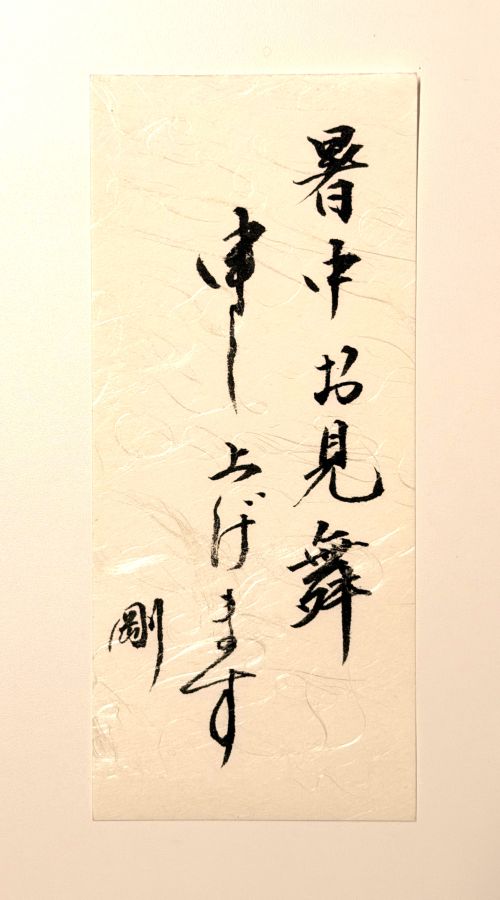 暑中お見舞
申し上げます
剛